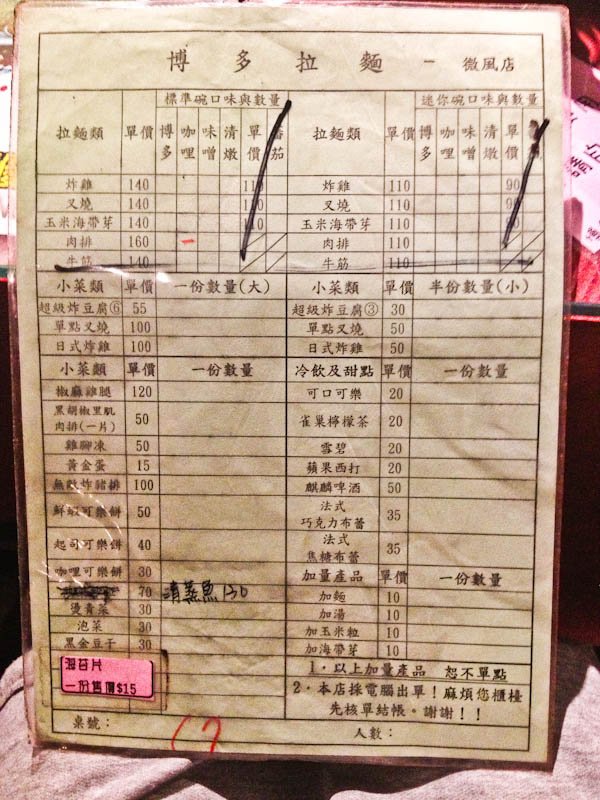 博多拉麵 - 微風店
標準碗口味與數量 迷你碗口味與數量
拉麵類 單價 博多 咖哩 味噌 清燉 單價 番茄 拉麵類 單價 博多 咖哩 味噌 清燉 單價
炸雞 140 110 炸雞 110 90
叉燒 140 110 叉燒 110 90
玉米海帶芽 140 110 玉米海帶芽 110
肉排 160 肉排 110
牛筋 140 牛筋 110
小菜類 單價 一份數量(大) 小菜類 單價 半份數量(小)
超級炸豆腐⑥ 55 超級炸豆腐③ 30
單點叉燒 100 單點叉燒 50
日式炸雞 100 日式炸雞 50
小菜類 單價 一份數量 冷飲及甜點 單價 一份數量
椒麻雞腿 120 可口可樂 20
黑胡椒里肌
肉排(一片) 50 雀巢檸檬茶 20
雞腳凍 50 雪碧 20
黃金蛋 15 蘋果西打 20
無敵炸豬排 100 麒麟啤酒 50
鮮蝦可樂餅 50 法式
巧克力布蕾 35
起司可樂餅 40 法式
焦糖布蕾 35
咖哩可樂餅 30 加量產品 單價 一份數量
70 清蒸魚130 加麵 10
燙青菜 30 加湯 10
泡菜 30 加玉米粒 10
黑金豆干 30 加海帶芽 10
海苔片
一份售價$15
1．以上加量產品 恕不單點
2．本店採電腦出單！麻煩您櫃檯
先核單結帳。謝謝！！
桌號： 人數：